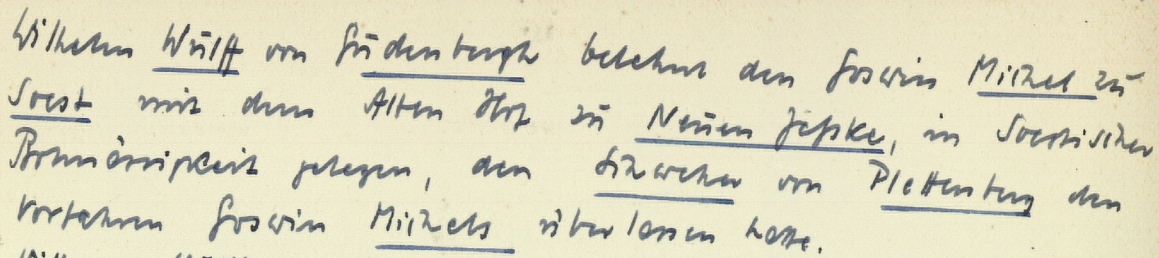 Wilhelm Wulff von Füdenbergh belehnt den Goswin Michel zu
Soest mit dem Alten Hof zu Neuen Jeßke, in Soestischer
Botmässigkeit gelegen, den von Plettenberg den
Vorfahren Goswin Michels überlassen hatte.